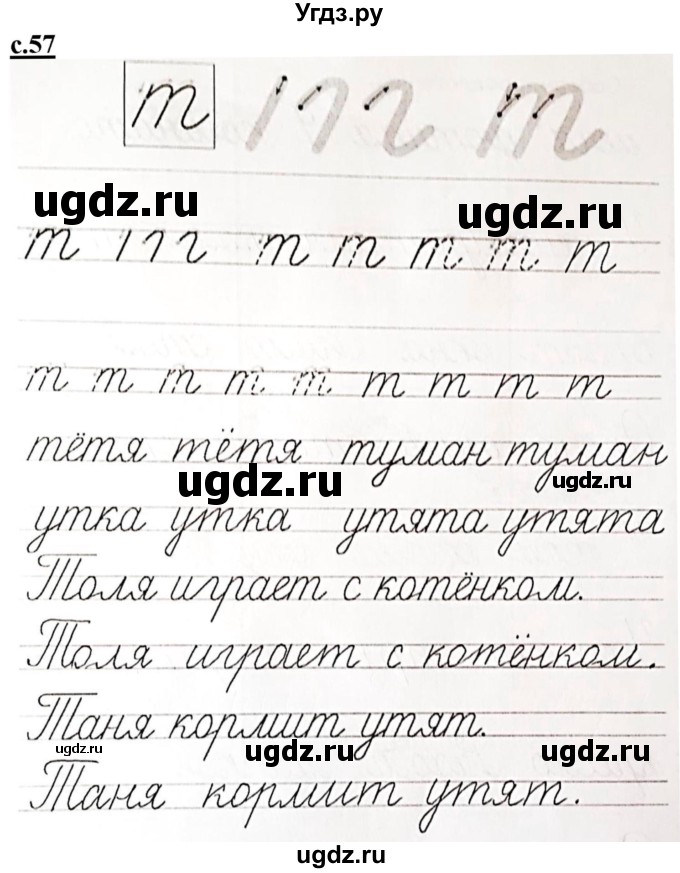 Угдз.ру
с.57
т т
ugdz.ru ugdz.ru
т т т т т т
т т т т т т т т т
тётя тётя туман туман
ugdz.ru ugdz.ru
утка утка утята утята
Толя играет с котёнком.
Толя играет с котёнком.
Таня кормит утят.
ugdz.ru ugdz.ru ugdz.ru
Таня кормит утят.
ugdz.ru